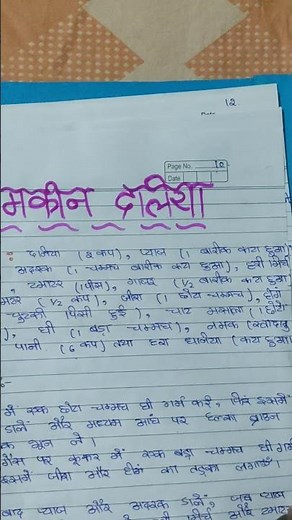 12
Date
Page No. 10
Date
मकीन दलिया
: दलिया (2 कप), प्याज (1 बारीक कटा हुआ)
अदरक (1 चम्मच बारीक कटा हुआ), हरी मिर्च
, टमाटर (1 पीस), गाजर (1/2 बारीक कटा हुआ)
मटर (1/2 कप), जीरा (1 छोटा चम्मच), हींग
चुटकी पिसी हुई), चाट मसाला (1 छोटा
), घी (1 बड़ा चम्मच), नमक (स्वादानु
पानी (6 कप) तथा हरा धनिया (कटा हुआ)
में एक छोटा चम्मच घी गर्म करें, फिर इसमें
डालें और मध्यम आंच पर हल्का ब्राउन
क भून लें।
गैस पर कुकर में एक बड़ा चम्मच घी गर्म
इसमें जीरा और हींग का तड़का लगाएँ।
बाद प्याज और अदरक डालें, जब प्याज